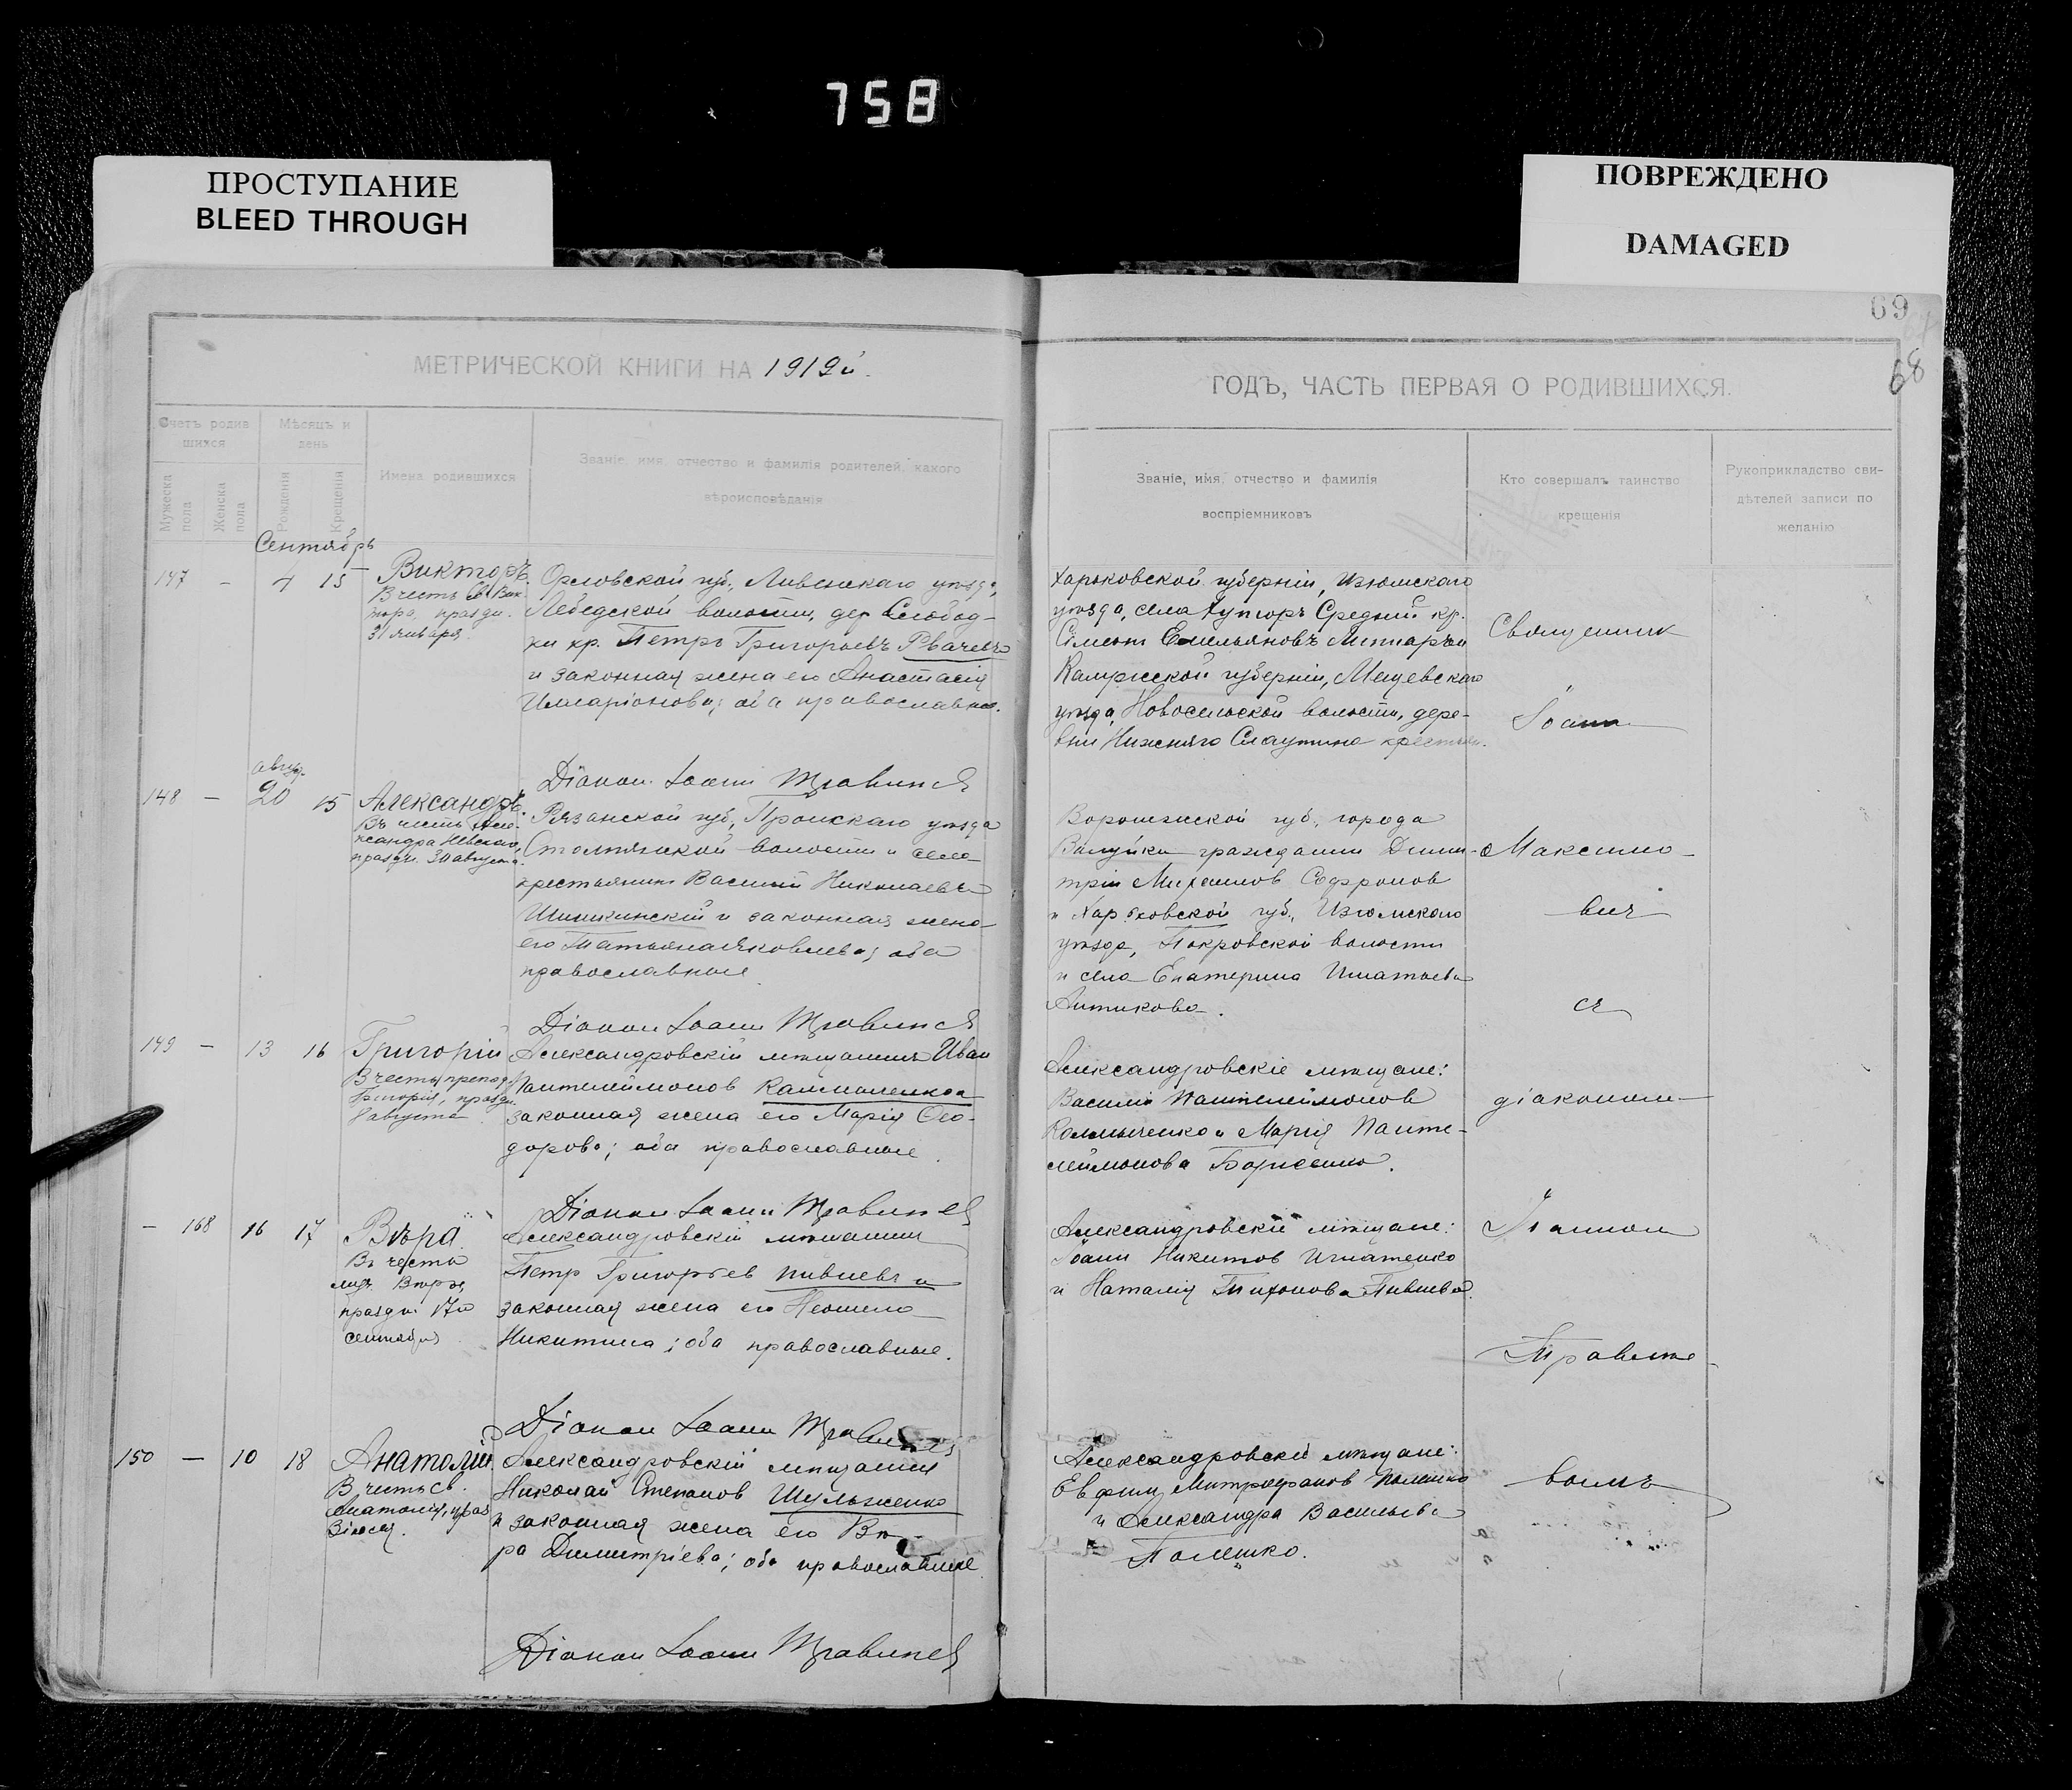 758
ПРОСТУПАНИЕ
BLEED THROUGH
ПОВРЕЖДЕНО
DAMAGED
69
68
МЕТРИЧЕСКОЙ КНИГИ НА 1919й.
ГОДЪ, ЧАСТЬ ПЕРВАЯ О РОДИВШИХСЯ.
Счетъ родив
шихся
Мужеска
пола
Женска
пола
Мѣсяцъ и
день
Рожденія
Крещенія
Имена родившихся
Званіе, имя, отчество и фамилія родителей, какого
вѣроисповѣданія
Званіе, имя, отчество и фамилія
воспріемниковъ
Кто совершалъ таинство
крещенія
Рукоприкладство сви-
дѣтелей записи по
желанію
Сентябрь
147 – 4 15
Викторъ.
В честь св. Вик-
тора, праздн.
31 января.
Орловской губ., Ливенскаго уѣзда,
волости, дер. Слобод-
ки кр. Петръ Григорьевъ
и законная жена его Анастасія
Илларіонова; оба православные.
Діакон Іоанн
Харьковской губерніи, Изюмскаго
уѣзда, села Хуторъ Средній кр.
Емельяновъ
Калужской губерніи, Мещевскаго
уѣзда, Новосельской волости, дере-
вни Нижняго крестьян.
Священник
Іоанн
авг.
148 – 20 15
Александръ.
Въ честь Але-
ксандра Невскаго,
праздн. 30 августа.
Рязанской губ., Пронскаго уѣзда
волости и села
крестьянин Василий Николаевъ
и законная жена
его Татьяна Яковлева; оба
православные.
Діакон Іоанн
Воронежской губ., города
Валуйки гражданин Дими-
трій Михаилов Софронов
и Харьковской губ., Изюмскаго
уѣзда, Покровской волости
и села Екатерина Игнатьева
Максимо-
вич
149 – 13 16
Григорій
В честь препод.
Григорія, праздн.
8 августа.
Александровскій мѣщанинъ Иван
Пантелеймонов
законная жена его Марія Фео-
дорова; оба православные.
Діакон Іоанн
Александровскіе мѣщане:
Василій Пантелеймонов
и Марія Панте-
леймонова Борисенко.
діаконом
– 168 16 17
Вѣра.
Въ честь
муч. Вѣры,
праздн. 17го
сентября
Александровскій мѣщанин
Петр Григорьев Пивневъ и
законная жена его Неонила
Никитина; оба православные.
Діакон Іоанн
Александровскіе мѣщане:
Іоанн Никитов Игнатенко
и Наталія Тихонова Пивнева.
Іоанном
150 – 10 18
Анатолій.
В честь св.
Анатолія, праз.
3 іюля.
Александровскій мѣщанин
Николай Степанов Шульженко
и законная жена его Вѣ-
ра Димитріева; оба православные.
Діакон Іоанн
Александровскіе мѣщане:
Евфим Митрофанов
и Александра Васильева
вымъ